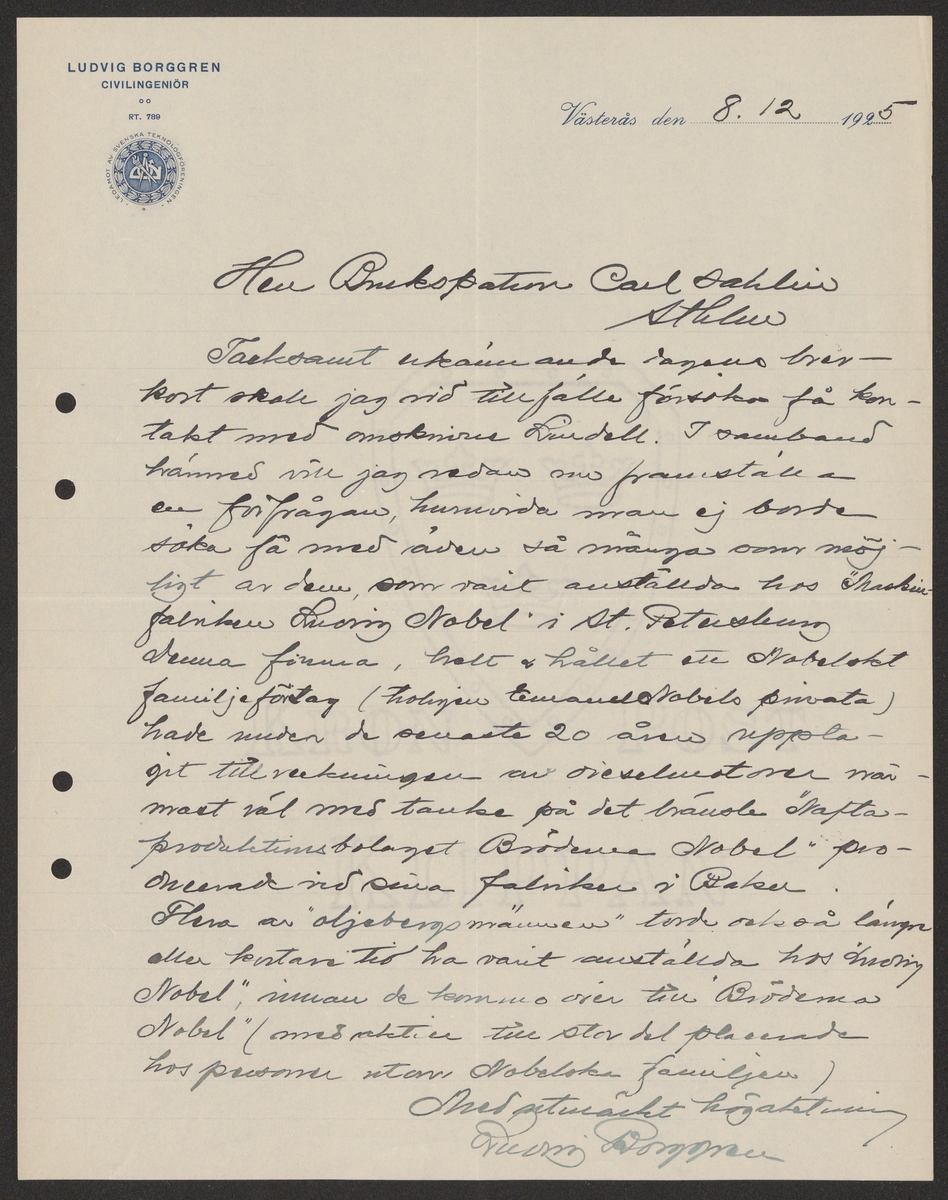 LUDVIG BORGGREN
CIVILINGENIÖR
RT. 789
LEDAMOT AV SVENSKA TEKNOLOGFÖRENINGEN
Västerås den 8. 12 1925
Herr Brukspatron Carl Sahlin
Sthlm
Tacksamt erkännande dagens brev-
kort skall jag vid tillfälle försöka få kon-
takt med omskrivne Lindell. I samband
härmed vill jag redan nu framställa
en förfrågan, huruvida man ej borde
söka få med även så många som möj-
ligt av dem, som varit anställda hos "Maskin-
fabriken Ludvig Nobel" i St. Petersburg
Denna firma, helt & hållet ett Nobelskt
familjeföretag (troligen Emanuel Nobels privata)
hade under de senaste 20 åren uppta-
git tillverkningen av dieselmotorer när-
mast väl med tanke på det bränsle "Nafta-
produktionsbolaget Bröderna Nobel" pro-
ducerade vid sina fabriker i Baku.
Flera av "oljebergsmännen" torde också längre
eller kortare tid ha varit anställda hos "Ludvig
Nobel", innan de kommo över till "Bröderna
Nobel" (med aktier till stor del placerade
hos personer utom Nobelska familjen)
Med utmärkt högaktning
Ludvig Borggren